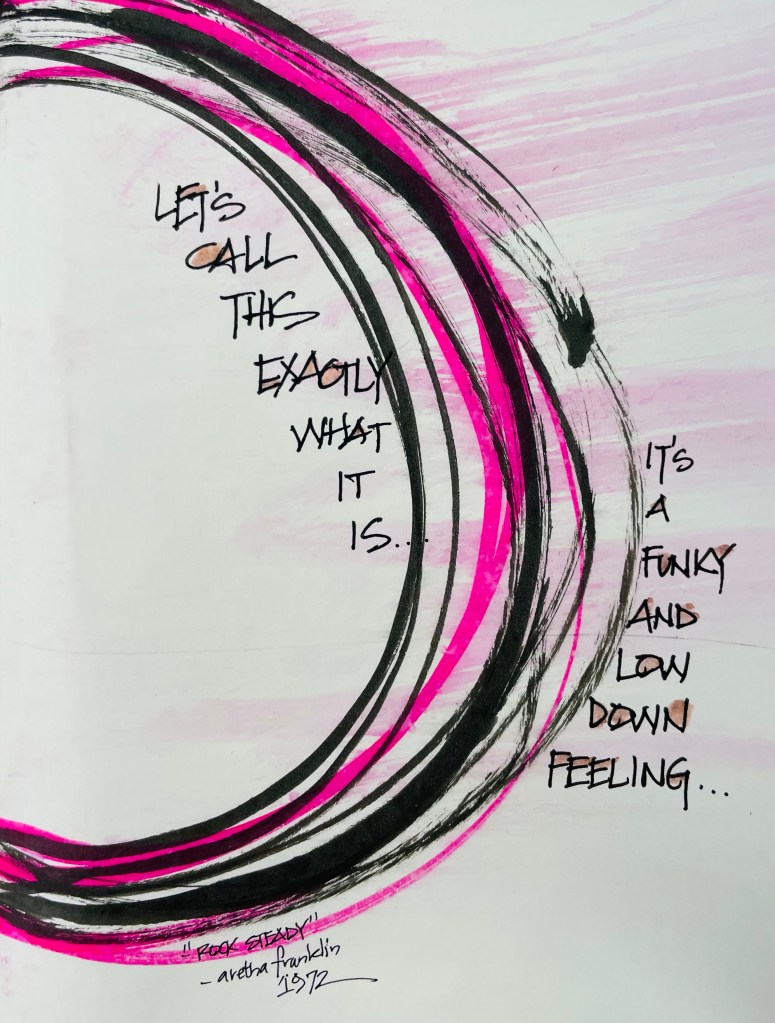 LET'S
CALL
THIS
EXACTLY
WHAT
IT
IS....
IT'S
A
FUNKY
AND
LOW
DOWN
FEELING...
"ROCK STEADY"
- aretha franklin
1972